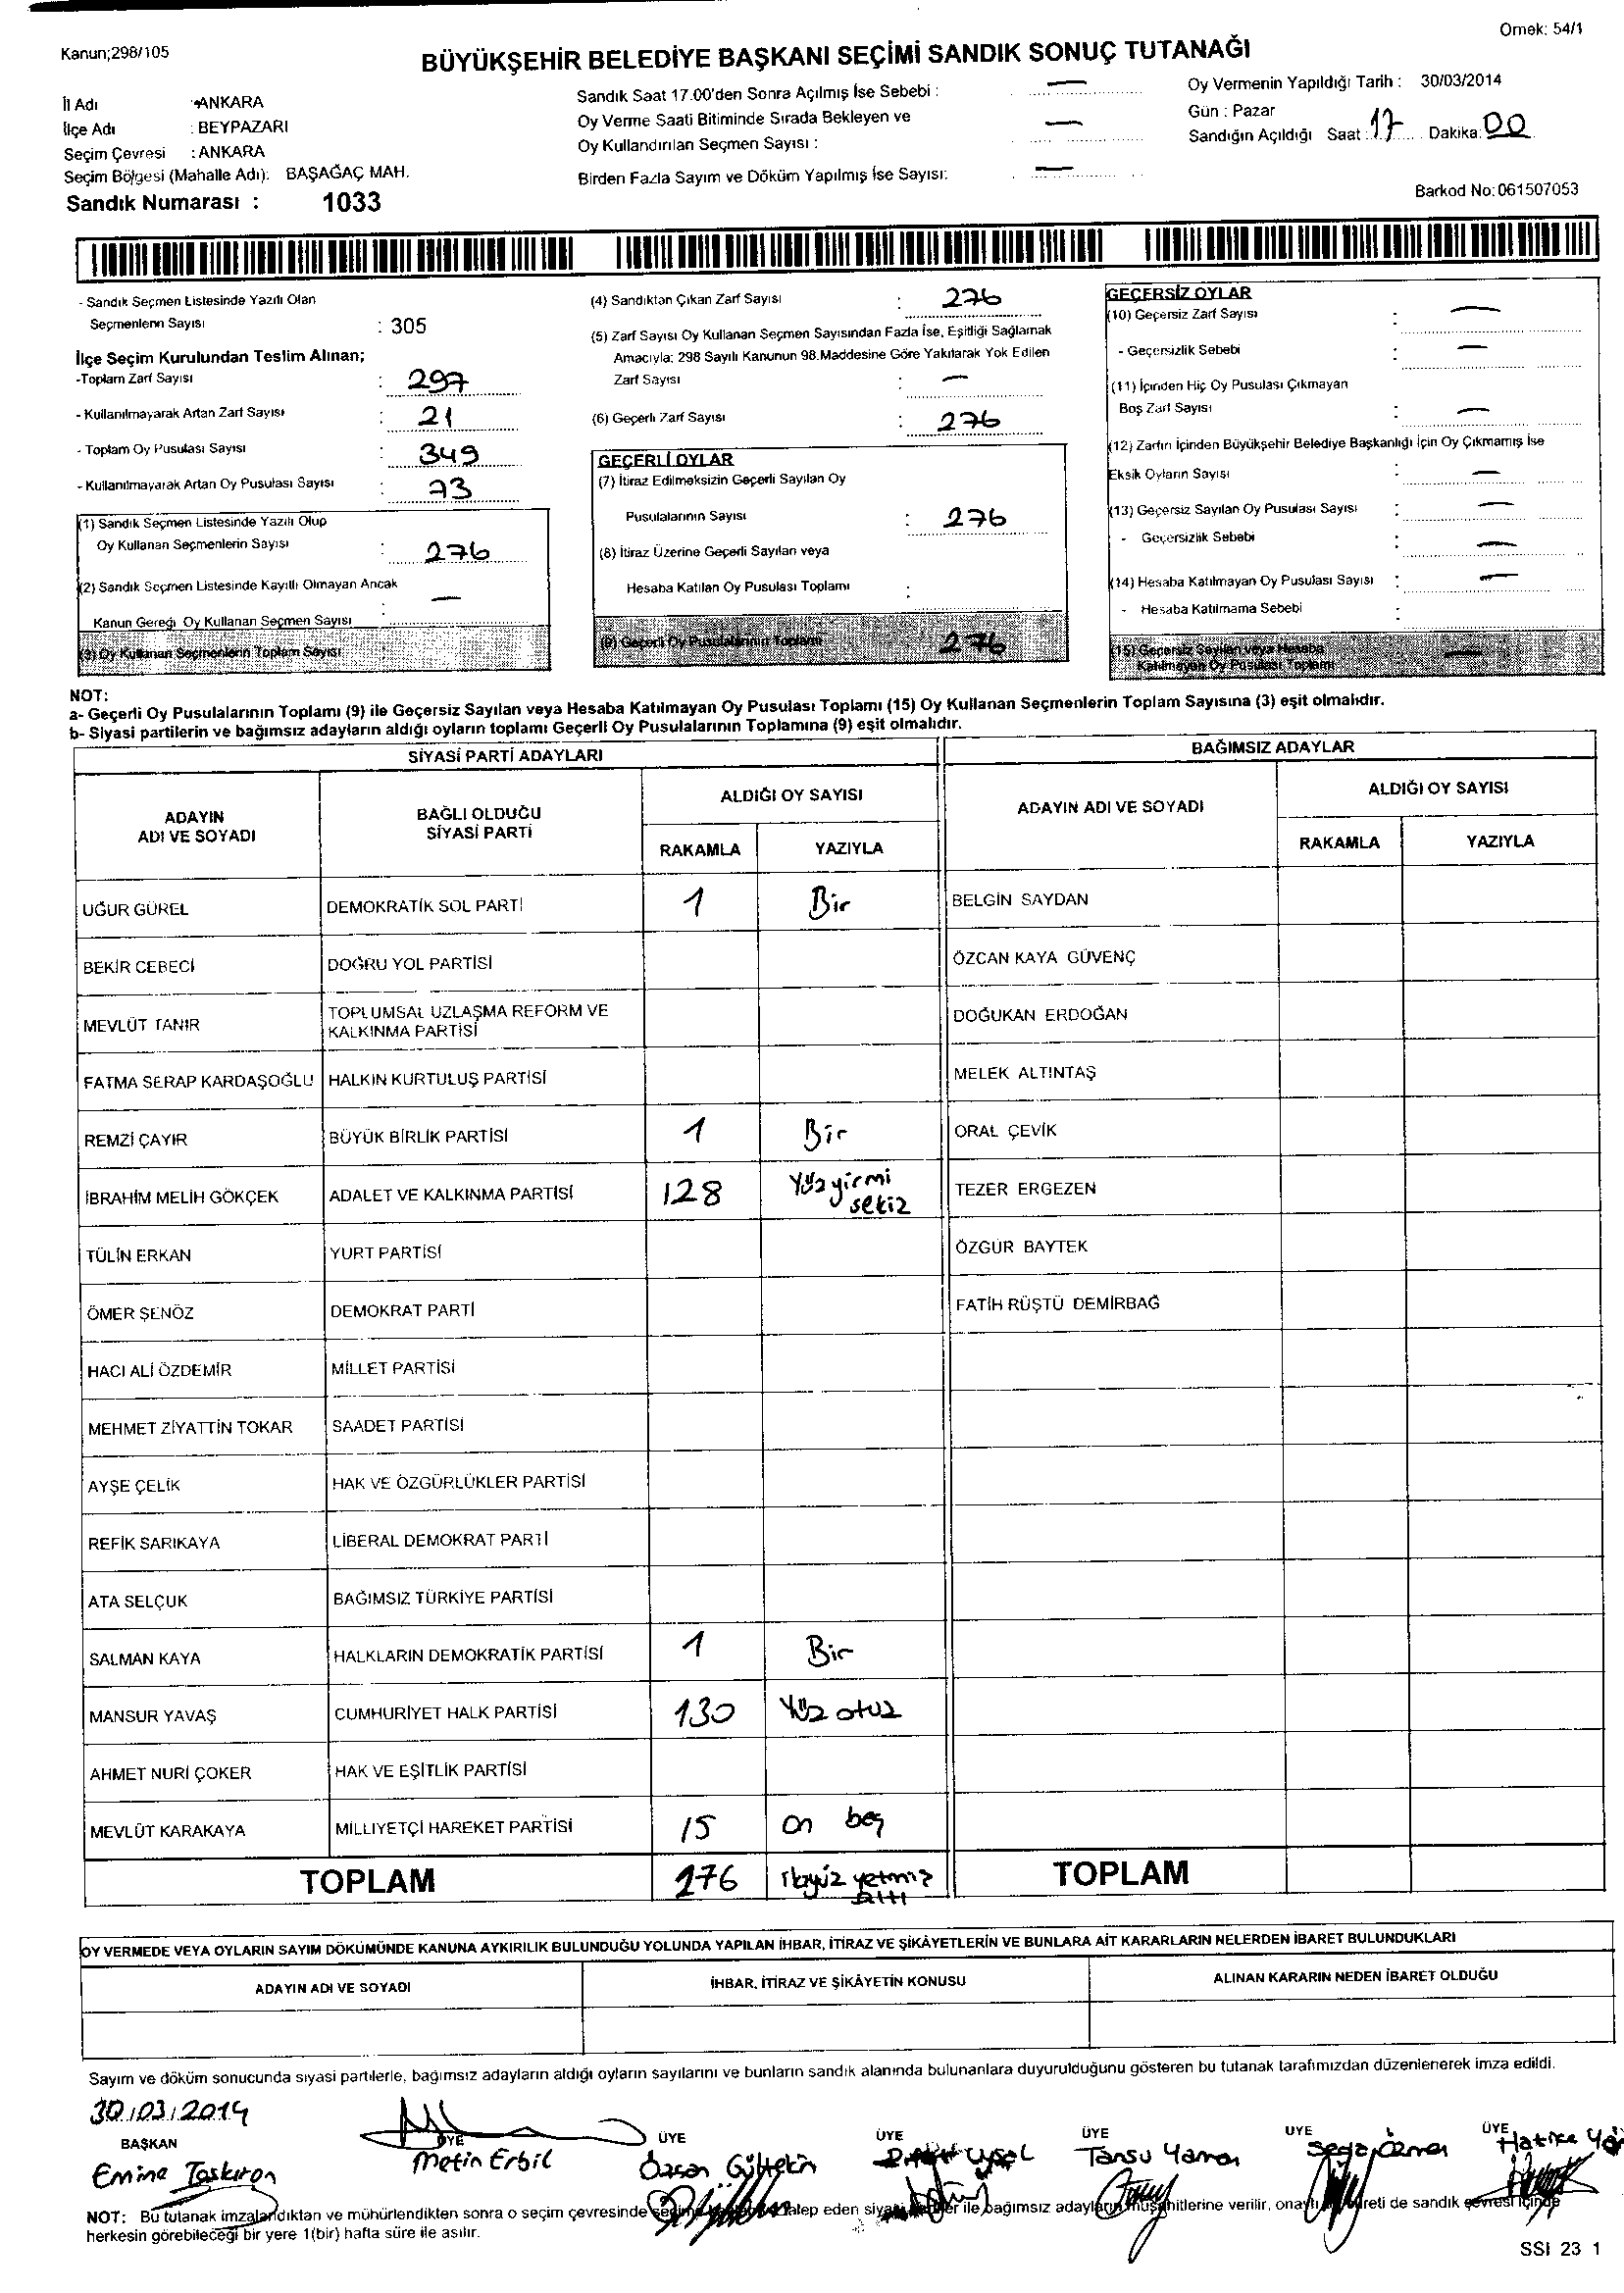 Kanun;298/105
Örnek: 54/1
BÜYÜKŞEHİR BELEDİYE BAŞKANI SEÇİMİ SANDIK SONUÇ TUTANAĞI
İl Adı : ANKARA
İlçe Adı : BEYPAZARI
Seçim Çevresi : ANKARA
Seçim Bölgesi (Mahalle Adı): BAŞAĞAÇ MAH.
Sandık Numarası : 1033
Sandık Saat 17.00'den Sonra Açılmış İse Sebebi : —
Oy Verme Saati Bitiminde Sırada Bekleyen ve
Oy Kullandırılan Seçmen Sayısı : —
Birden Fazla Sayım ve Döküm Yapılmış İse Sayısı: —
Oy Vermenin Yapıldığı Tarih : 30/03/2014
Gün : Pazar
Sandığın Açıldığı Saat : 17 Dakika: 00
Barkod No: 061507053
- Sandık Seçmen Listesinde Yazılı Olan
Seçmenlerin Sayısı : 305
İlçe Seçim Kurulundan Teslim Alınan;
-Toplam Zarf Sayısı : 297
- Kullanılmayarak Artan Zarf Sayısı : 21
- Toplam Oy Pusulası Sayısı : 349
- Kullanılmayarak Artan Oy Pusulası Sayısı : 73
(1) Sandık Seçmen Listesinde Yazılı Olup
Oy Kullanan Seçmenlerin Sayısı : 276
(2) Sandık Seçmen Listesinde Kayıtlı Olmayan Ancak
Kanun Gereği Oy Kullanan Seçmen Sayısı : —
(3) Oy Kullanan Seçmenlerin Toplam Sayısı
(4) Sandıktan Çıkan Zarf Sayısı : 276
(5) Zarf Sayısı Oy Kullanan Seçmen Sayısından Fazla İse, Eşitliği Sağlamak
Amacıyla: 298 Sayılı Kanunun 98.Maddesine Göre Yakılarak Yok Edilen
Zarf Sayısı : —
(6) Geçerli Zarf Sayısı : 276
GEÇERLİ OYLAR
(7) İtiraz Edilmeksizin Geçerli Sayılan Oy
Pusulalarının Sayısı : 276
(8) İtiraz Üzerine Geçerli Sayılan veya
Hesaba Katılan Oy Pusulası Toplamı :
(9) Geçerli Oy Pusulalarının Toplamı 276
GEÇERSİZ OYLAR
(10) Geçersiz Zarf Sayısı : —
- Geçersizlik Sebebi : —
(11) İçinden Hiç Oy Pusulası Çıkmayan
Boş Zarf Sayısı : —
(12) Zarfın İçinden Büyükşehir Belediye Başkanlığı İçin Oy Çıkmamış İse
Eksik Oyların Sayısı : —
(13) Geçersiz Sayılan Oy Pusulası Sayısı : —
- Geçersizlik Sebebi : —
(14) Hesaba Katılmayan Oy Pusulası Sayısı : —
- Hesaba Katılmama Sebebi :
(15) Geçersiz Sayılan veya Hesaba
Katılmayan Oy Pusulası Toplamı —
NOT:
a- Geçerli Oy Pusulalarının Toplamı (9) ile Geçersiz Sayılan veya Hesaba Katılmayan Oy Pusulası Toplamı (15) Oy Kullanan Seçmenlerin Toplam Sayısına (3) eşit olmalıdır.
b- Siyasi partilerin ve bağımsız adayların aldığı oyların toplamı Geçerli Oy Pusulalarının Toplamına (9) eşit olmalıdır.
SİYASİ PARTİ ADAYLARI
ADAYIN ADI VE SOYADI
BAĞLI OLDUĞU SİYASİ PARTİ
ALDIĞI OY SAYISI
RAKAMLA YAZIYLA
UĞUR GÜREL DEMOKRATİK SOL PARTİ 1 Bir
BEKİR CEBECİ DOĞRU YOL PARTİSİ
MEVLÜT TANIR TOPLUMSAL UZLAŞMA REFORM VE
KALKINMA PARTİSİ
FATMA SERAP KARDAŞOĞLU HALKIN KURTULUŞ PARTİSİ
REMZİ ÇAYIR BÜYÜK BİRLİK PARTİSİ 1 Bir
İBRAHİM MELİH GÖKÇEK ADALET VE KALKINMA PARTİSİ 128 Yüzyirmi
sekiz
TÜLİN ERKAN YURT PARTİSİ
ÖMER ŞENÖZ DEMOKRAT PARTİ
HACI ALİ ÖZDEMİR MİLLET PARTİSİ
MEHMET ZİYATTİN TOKAR SAADET PARTİSİ
AYŞE ÇELİK HAK VE ÖZGÜRLÜKLER PARTİSİ
REFİK SARIKAYA LİBERAL DEMOKRAT PARTİ
ATA SELÇUK BAĞIMSIZ TÜRKİYE PARTİSİ
SALMAN KAYA HALKLARIN DEMOKRATİK PARTİSİ 1 Bir
MANSUR YAVAŞ CUMHURİYET HALK PARTİSİ 130 Yüz otuz
AHMET NURİ ÇOKER HAK VE EŞİTLİK PARTİSİ
MEVLÜT KARAKAYA MİLLİYETÇİ HAREKET PARTİSİ 15 on beş
TOPLAM 276 ikiyüz yetmiş
altı
BAĞIMSIZ ADAYLAR
ADAYIN ADI VE SOYADI
ALDIĞI OY SAYISI
RAKAMLA YAZIYLA
BELGİN SAYDAN
ÖZCAN KAYA GÜVENÇ
DOĞUKAN ERDOĞAN
MELEK ALTINTAŞ
ORAL ÇEVİK
TEZER ERGEZEN
ÖZGÜR BAYTEK
FATİH RÜŞTÜ DEMİRBAĞ
TOPLAM
OY VERMEDE VEYA OYLARIN SAYIM DÖKÜMÜNDE KANUNA AYKIRILIK BULUNDUĞU YOLUNDA YAPILAN İHBAR, İTİRAZ VE ŞİKÂYETLERİN VE BUNLARA AİT KARARLARIN NELERDEN İBARET BULUNDUKLARI
ADAYIN ADI VE SOYADI
İHBAR, İTİRAZ VE ŞİKÂYETİN KONUSU
ALINAN KARARIN NEDEN İBARET OLDUĞU
Sayım ve döküm sonucunda siyasi partilerle, bağımsız adayların aldığı oyların sayılarını ve bunların sandık alanında bulunanlara duyurulduğunu gösteren bu tutanak tarafımızdan düzenlenerek imza edildi.
30/03/2014
BAŞKAN ÜYE ÜYE ÜYE ÜYE ÜYE ÜYE
Emine Taşkıran Metin Erbil Özcan Gültekin Uysal Tansu Yaman Hatice
NOT: Bu tutanak imzalandıktan ve mühürlendikten sonra o seçim çevresinde talep eden ile bağımsız adayların müşahitlerine verilir, de sandık çevresi içinde
herkesin görebileceği bir yere 1(bir) hafta süre ile asılır.
SSI 23 1